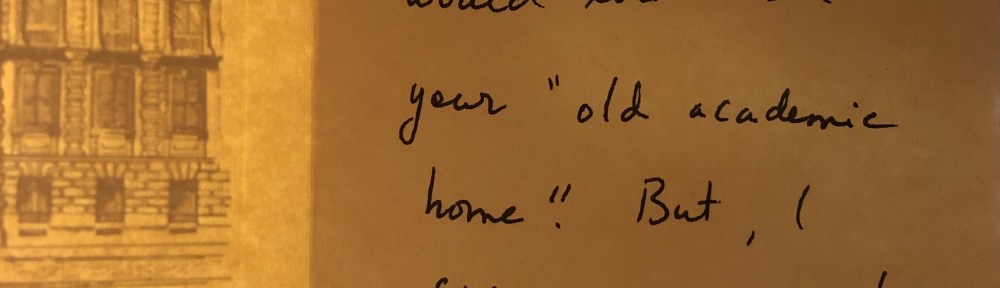 would
your "old academic
home". But, I